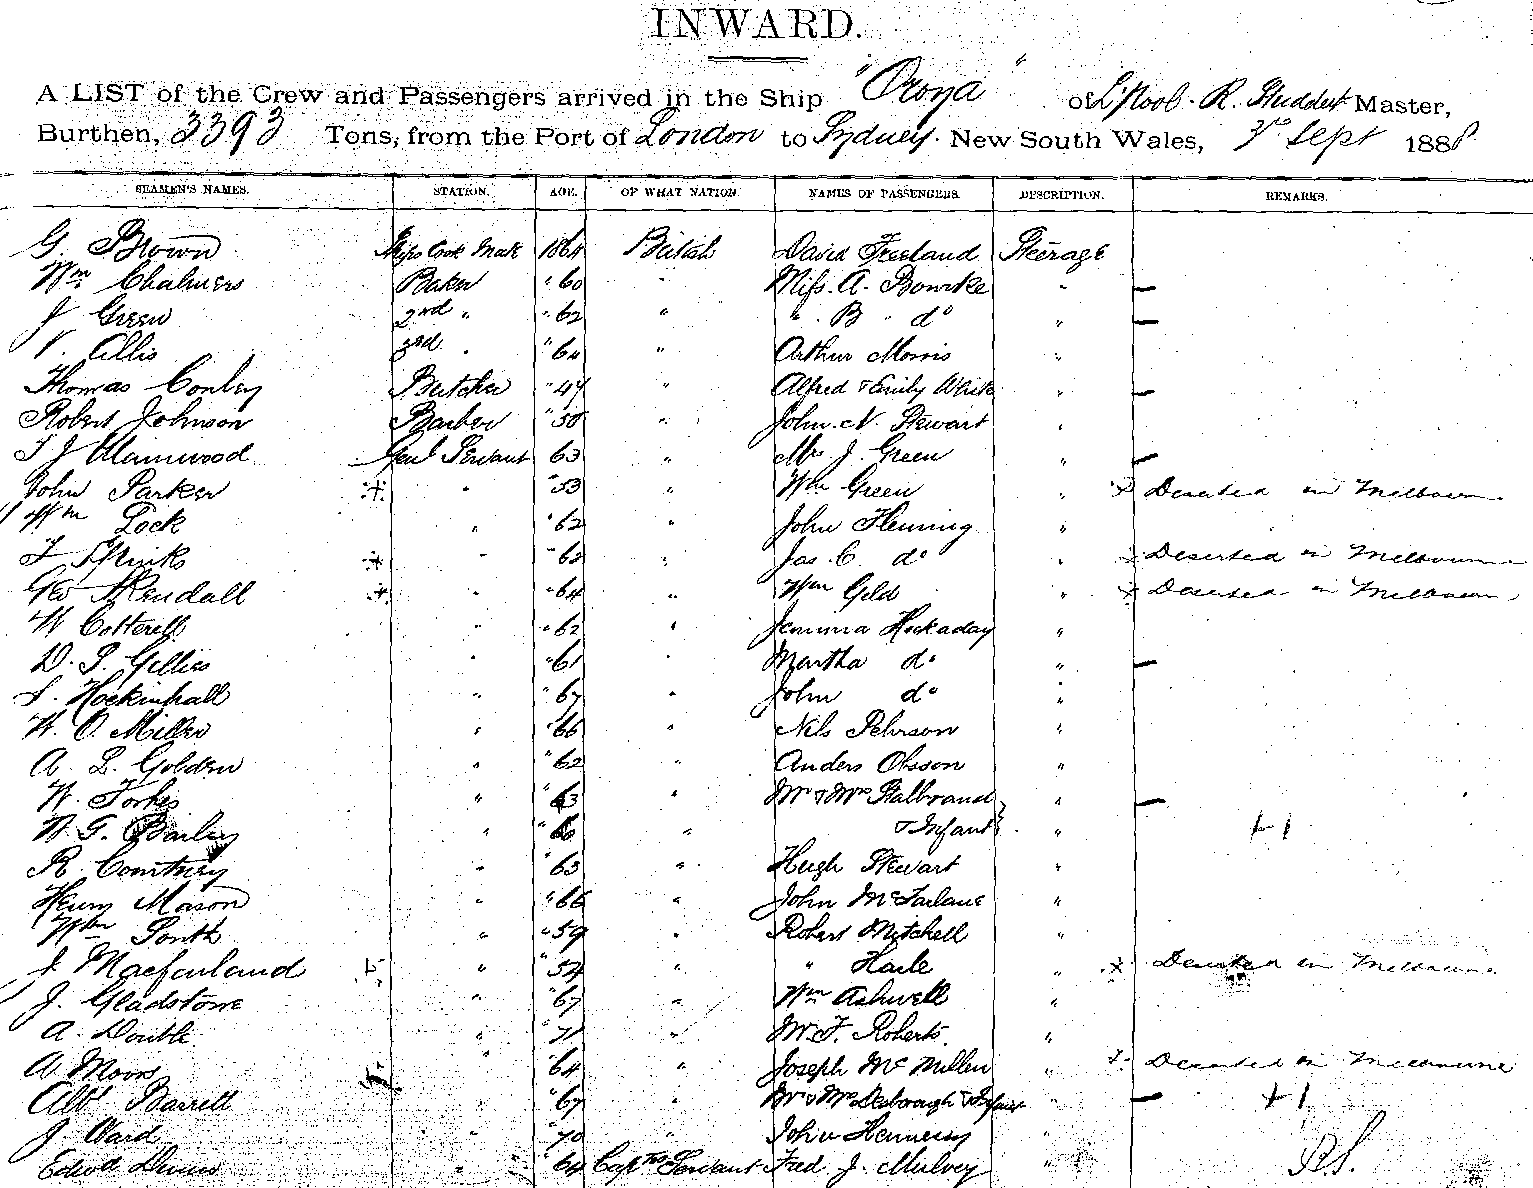 INWARD.
A LIST of the Crew and Passengers arrived in the Ship "Oroya" of L'pool. R. Studdert Master,
Burthen, 3393 Tons, from the Port of London to Sydney. New South Wales, 3rd Sept 1888
SEAMEN'S NAMES. STATION. AGE. OF WHAT NATION. NAMES OF PASSENGERS. DESCRIPTION. REMARKS.
G. Brown Ships Cook Mate 1864 British David Freeland Steerage
Wm Chalmers Baker " 60 " Miss. A. Bourke " —
J Green 2nd " " 62 " " B " do " —
V. Allis 3rd " " 64 " Arthur Morris "
Thomas Conley Butcher " 47 " Alfred & Emily White " —
Robert Johnson Barber " 58 " John. N. Stewart "
T J Mainwood Genl Servant 63 " Mrs J. Green " —
John Parker " " 53 " Wm Green " x Deserted in Melbourne
Wm Lock " " 62 " John Fleming "
F Spinks " " 62 " Jas C. do " x Deserted in Melbourne
Geo Kendall " " 64 " Wm Geld " x Deserted in Melbourne
W Cotterell " " 62 " Jemima Hockaday "
D. P. Gillies " " 61 " Martha do " —
S. Hockinhall " " 67 " John do "
W. O. Miller " " 66 " Nels Pehrson "
A. L. Golden " " 62 " Anders Olsson "
W. Forbes " " 63 " Mr & Mrs Stalbrand " —
W. G. Bailey " " 60 " & Infant " +1
R. Courtney " " 63 " Hugh Stewart "
Henry Mason " " 66 " John McFarlane "
Wm South " " 59 " Robert Mitchell "
J. Macfarland " " 54 " " Haile " x Deserted in Melbourne
J. Gladstone " " 67 " Wm Ashwell "
A. Double " " 71 " Mr F. Roberts. "
A Moors " " 64 " Joseph McMillen " x Deserted in Melbourne
Albt Barrell " " 67 " Mr & Mrs Desborough & Infant " — +1
J. Ward " " 70 " John Hennessy "
Edwd " " 64 Capts Servant Fred J. Mulvey " R.S.